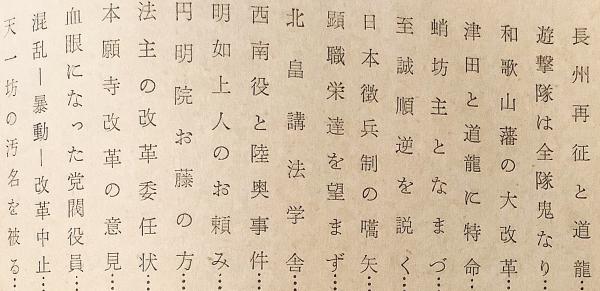 長州再征と道龍
遊撃隊は全隊鬼なり
和歌山藩の大改革
津田と道龍に特命
蛸坊主となまづ
至誠順逆を説く
日本徴兵制の嚆矢
顕職栄達を望まず
北畠講法学舎
西南役と陸奥事件
明如上人のお頼み
円明院お藤の方
法主の改革委任状
本願寺改革の意見
血眼になった党閥役員
混乱—暴動—改革中止
天一坊の汚名を被る